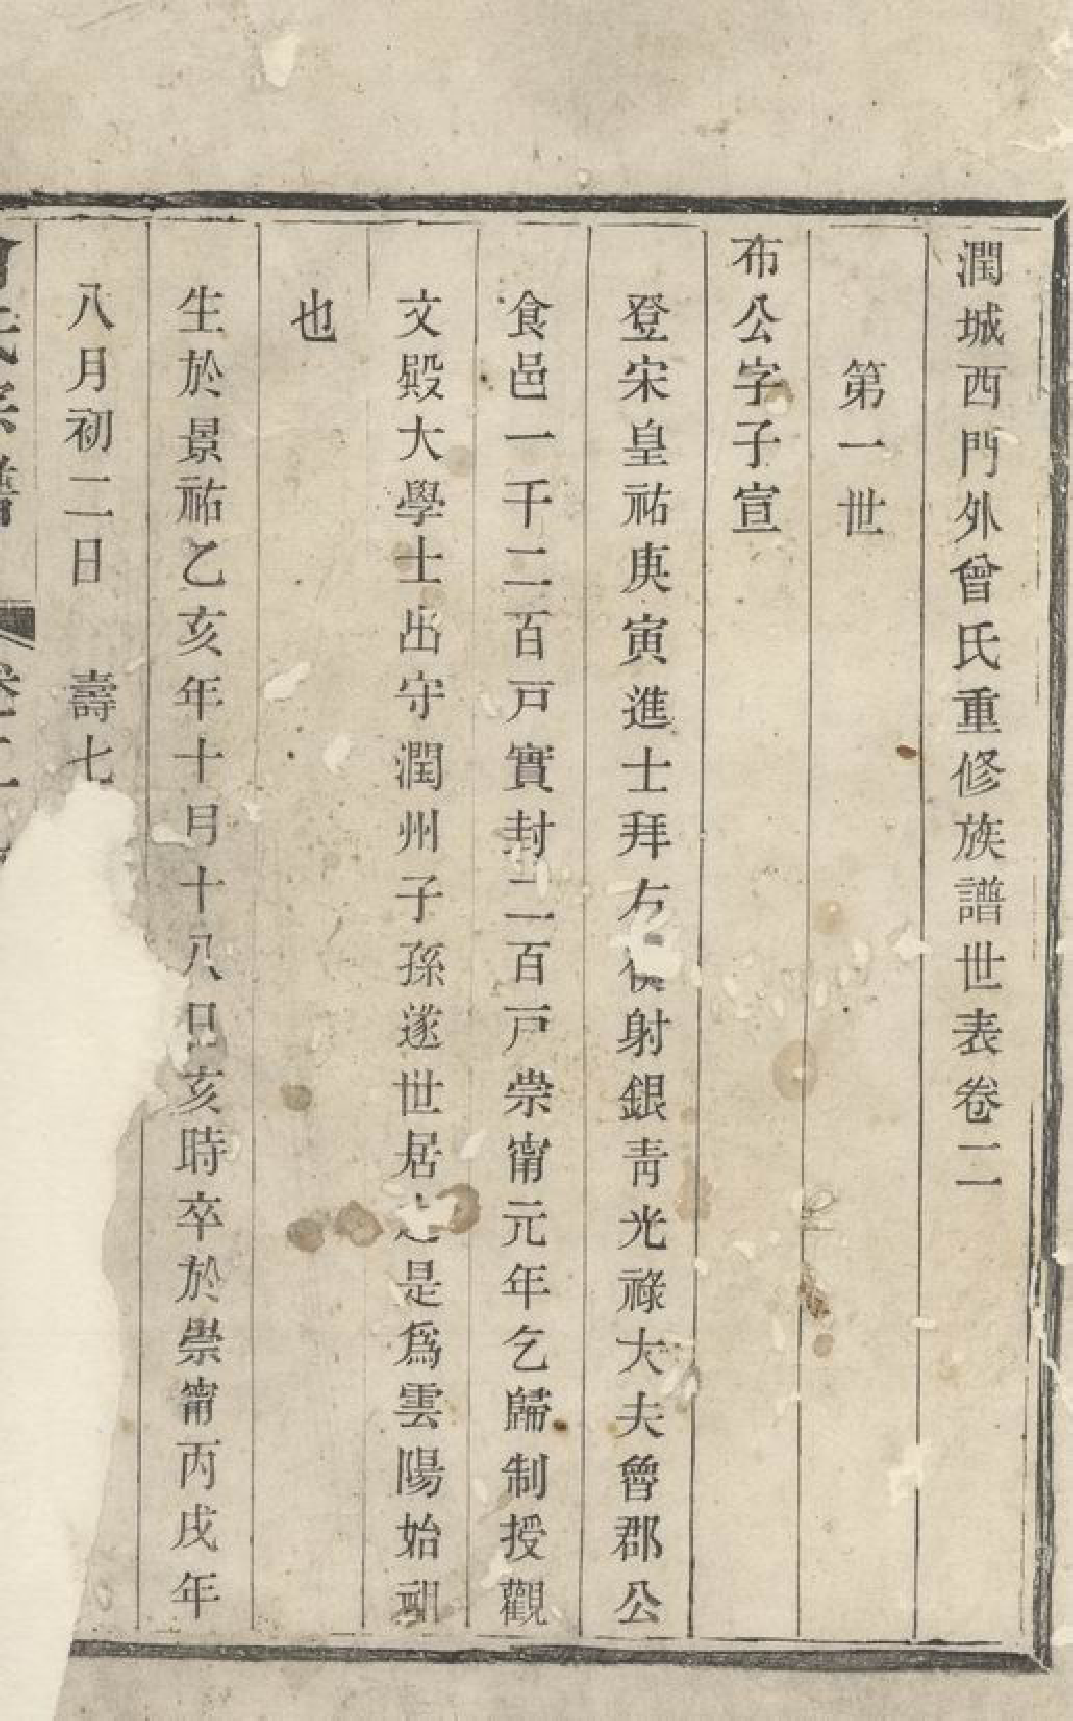 潤城西門外曾氏重修族譜世表卷二
第一世
布公字子宣
登宋皇祐庚寅進士拜右射銀青光祿大夫曾郡公
食邑一千二百戸實封二百戸崇甯元年乞歸制授觀
文殿大學士出守潤州子孫遂世居是為雲陽始祖
也
生於景祐乙亥年十月十八日亥時卒於崇甯丙戌年
八月初二日 壽七
氏宗譜 卷二